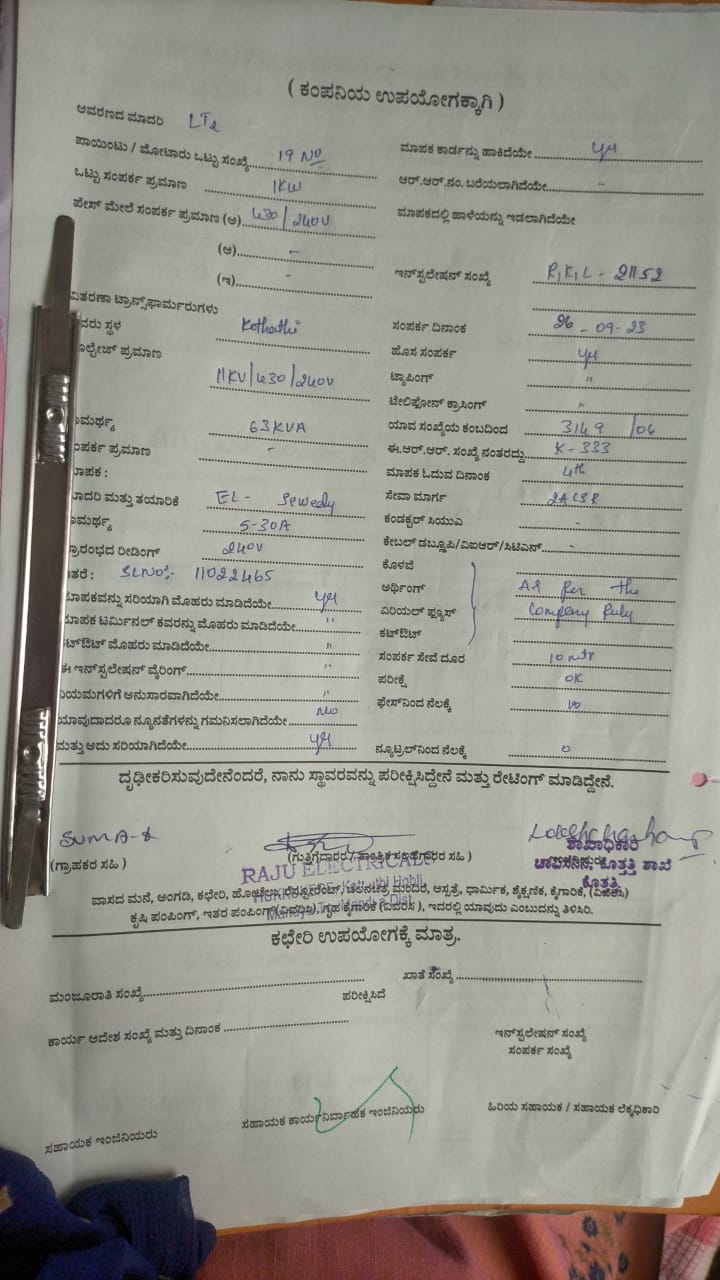 ( ಕಂಪನಿಯ ಉಪಯೋಗಕ್ಕಾಗಿ )
ಆವರಣದ ಮಾದರಿ LT2
ಪಾಯಿಂಟು / ಮೋಟಾರು ಒಟ್ಟು ಸಂಖ್ಯೆ 19 No
ಒಟ್ಟು ಸಂಪರ್ಕ ಪ್ರಮಾಣ 1KW
ಪೇಸ್ ಮೇಲೆ ಸಂಪರ್ಕ ಪ್ರಮಾಣ (ಅ) 430/240V
(ಆ) -
(ಇ) -
ವಿತರಣಾ ಟ್ರಾನ್ಸ್‌ಫಾರ್ಮರುಗಳು
ವರು ಸ್ಥಳ Kothathi
ಲ್ಟೇಜ್ ಪ್ರಮಾಣ
11KV/430/240V
ಾಮರ್ಥ್ಯ 63KVA
ಂಪರ್ಕ ಪ್ರಮಾಣ -
ಾಪಕ :
ಾದರಿ ಮತ್ತು ತಯಾರಿಕೆ EL- Sewedy
ಾಮರ್ಥ್ಯ 5-30A
್ರಾರಂಭದ ರೀಡಿಂಗ್ 240V
ತರೆ : SLNo:- 11022465
ಾಪಕವನ್ನು ಸರಿಯಾಗಿ ಮೊಹರು ಮಾಡಿದೆಯೇ yes
ಾಪಕ ಟರ್ಮಿನಲ್ ಕವರನ್ನು ಮೊಹರು ಮಾಡಿದೆಯೇ "
ಕಟ್‌ಔಟ್ ಮೊಹರು ಮಾಡಿದೆಯೇ "
ಈ ಇನ್‌ಸ್ಟಲೇಷನ್ ವೈರಿಂಗ್ "
ನಿಯಮಗಳಿಗೆ ಅನುಸಾರವಾಗಿದೆಯೇ "
ಯಾವುದಾದರೂ ನ್ಯೂನತೆಗಳನ್ನು ಗಮನಿಸಲಾಗಿದೆಯೇ No
ಮತ್ತು ಅದು ಸರಿಯಾಗಿದೆಯೇ yes
ಮಾಪಕ ಕಾರ್ಡನ್ನು ಹಾಕಿದೆಯೇ yes
ಆರ್.ಆರ್.ನಂ. ಬರೆಯಲಾಗಿದೆಯೇ -
ಮಾಪಕದಲ್ಲಿ ಹಾಳೆಯನ್ನು ಇಡಲಾಗಿದೆಯೇ
ಇನ್‌ಸ್ಟಲೇಷನ್ ಸಂಖ್ಯೆ
ಸಂಪರ್ಕ ದಿನಾಂಕ 26-09-23
ಹೊಸ ಸಂಪರ್ಕ yes
ಟ್ಯಾಪಿಂಗ್ "
ಟೇಲಿಫೋನ್ ಕ್ರಾಸಿಂಗ್ "
ಯಾವ ಸಂಖ್ಯೆಯ ಕಂಬದಿಂದ 3149 /06
ಈ.ಆರ್.ಆರ್. ಸಂಖ್ಯೆ ನಂತರದ್ದು K-333
ಮಾಪಕ ಓದುವ ದಿನಾಂಕ 4th
ಸೇವಾ ಮಾರ್ಗ 2ACSR
ಕಂಡಕ್ಟರ್ ಸಿಯುಎ -
ಕೇಬಲ್ ಡಬ್ಲ್ಯೂಪಿ/ವಿಐಆರ್/ಸಿಟಿಎನ್ -
ಕೊಳವೆ
ಅರ್ಥಿಂಗ್ As per the
ಏರಿಯಲ್ ಫ್ಯೂಸ್ Company Ruls
ಕಟ್‌ಔಟ್
ಸಂಪರ್ಕ ಸೇವೆ ದೂರ 10 mtr
ಪರೀಕ್ಷೆ OK
ಫೇಸ್‌ನಿಂದ ನೆಲಕ್ಕೆ
ನ್ಯೂಟ್ರಲ್‌ನಿಂದ ನೆಲಕ್ಕೆ 0
ದೃಢೀಕರಿಸುವುದೇನೆಂದರೆ, ನಾನು ಸ್ಥಾವರವನ್ನು ಪರೀಕ್ಷಿಸಿದ್ದೇನೆ ಮತ್ತು ರೇಟಿಂಗ್ ಮಾಡಿದ್ದೇನೆ.
(ಗ್ರಾಹಕರ ಸಹಿ)
(ಗುತ್ತಿಗೆದಾರರ / ತಾಂತ್ರಿಕ ಸಲಹೆಗಾರರ ಸಹಿ )
RAJU ELECTRICALS
ಶಾಖಾಧಿಕಾರಿ
ಕೊತ್ತತ್ತಿ ಶಾಖೆ
ಕೊತ್ತತ್ತಿ
ವಾಸದ ಮನೆ, ಅಂಗಡಿ, ಕಛೇರಿ, ಹೋಟೆಲು, ರೆಸ್ಟೂರೆಂಟ್, ಚಲನಚಿತ್ರ ಮಂದಿರ, ಆಸ್ಪತ್ರೆ, ಧಾರ್ಮಿಕ, ಶೈಕ್ಷಣಿಕ, ಕೈಗಾರಿಕೆ, (ವಿವರಿಸಿ)
ಕೃಷಿ ಪಂಪಿಂಗ್, ಇತರ ಪಂಪಿಂಗ್ (ವಿವರಿಸಿ), ಗೃಹ ಕೈಗಾರಿಕೆ (ವಿವರಿಸಿ ), ಇದರಲ್ಲಿ ಯಾವುದು ಎಂಬುದನ್ನು ತಿಳಿಸಿರಿ.
ಕಛೇರಿ ಉಪಯೋಗಕ್ಕೆ ಮಾತ್ರ.
ಮಂಜೂರಾತಿ ಸಂಖ್ಯೆ
ಪರೀಕ್ಷಿಸಿದೆ
ಖಾತೆ ಸಂಖ್ಯೆ
ಕಾರ್ಯ ಆದೇಶ ಸಂಖ್ಯೆ ಮತ್ತು ದಿನಾಂಕ
ಇನ್‌ಸ್ಟಲೇಷನ್ ಸಂಖ್ಯೆ
ಸಂಪರ್ಕ ಸಂಖ್ಯೆ
ಸಹಾಯಕ ಇಂಜಿನಿಯರು
ಸಹಾಯಕ ಕಾರ್ಯನಿರ್ವಾಹಕ ಇಂಜಿನಿಯರು
ಹಿರಿಯ ಸಹಾಯಕ / ಸಹಾಯಕ ಲೆಕ್ಕಧಿಕಾರಿ